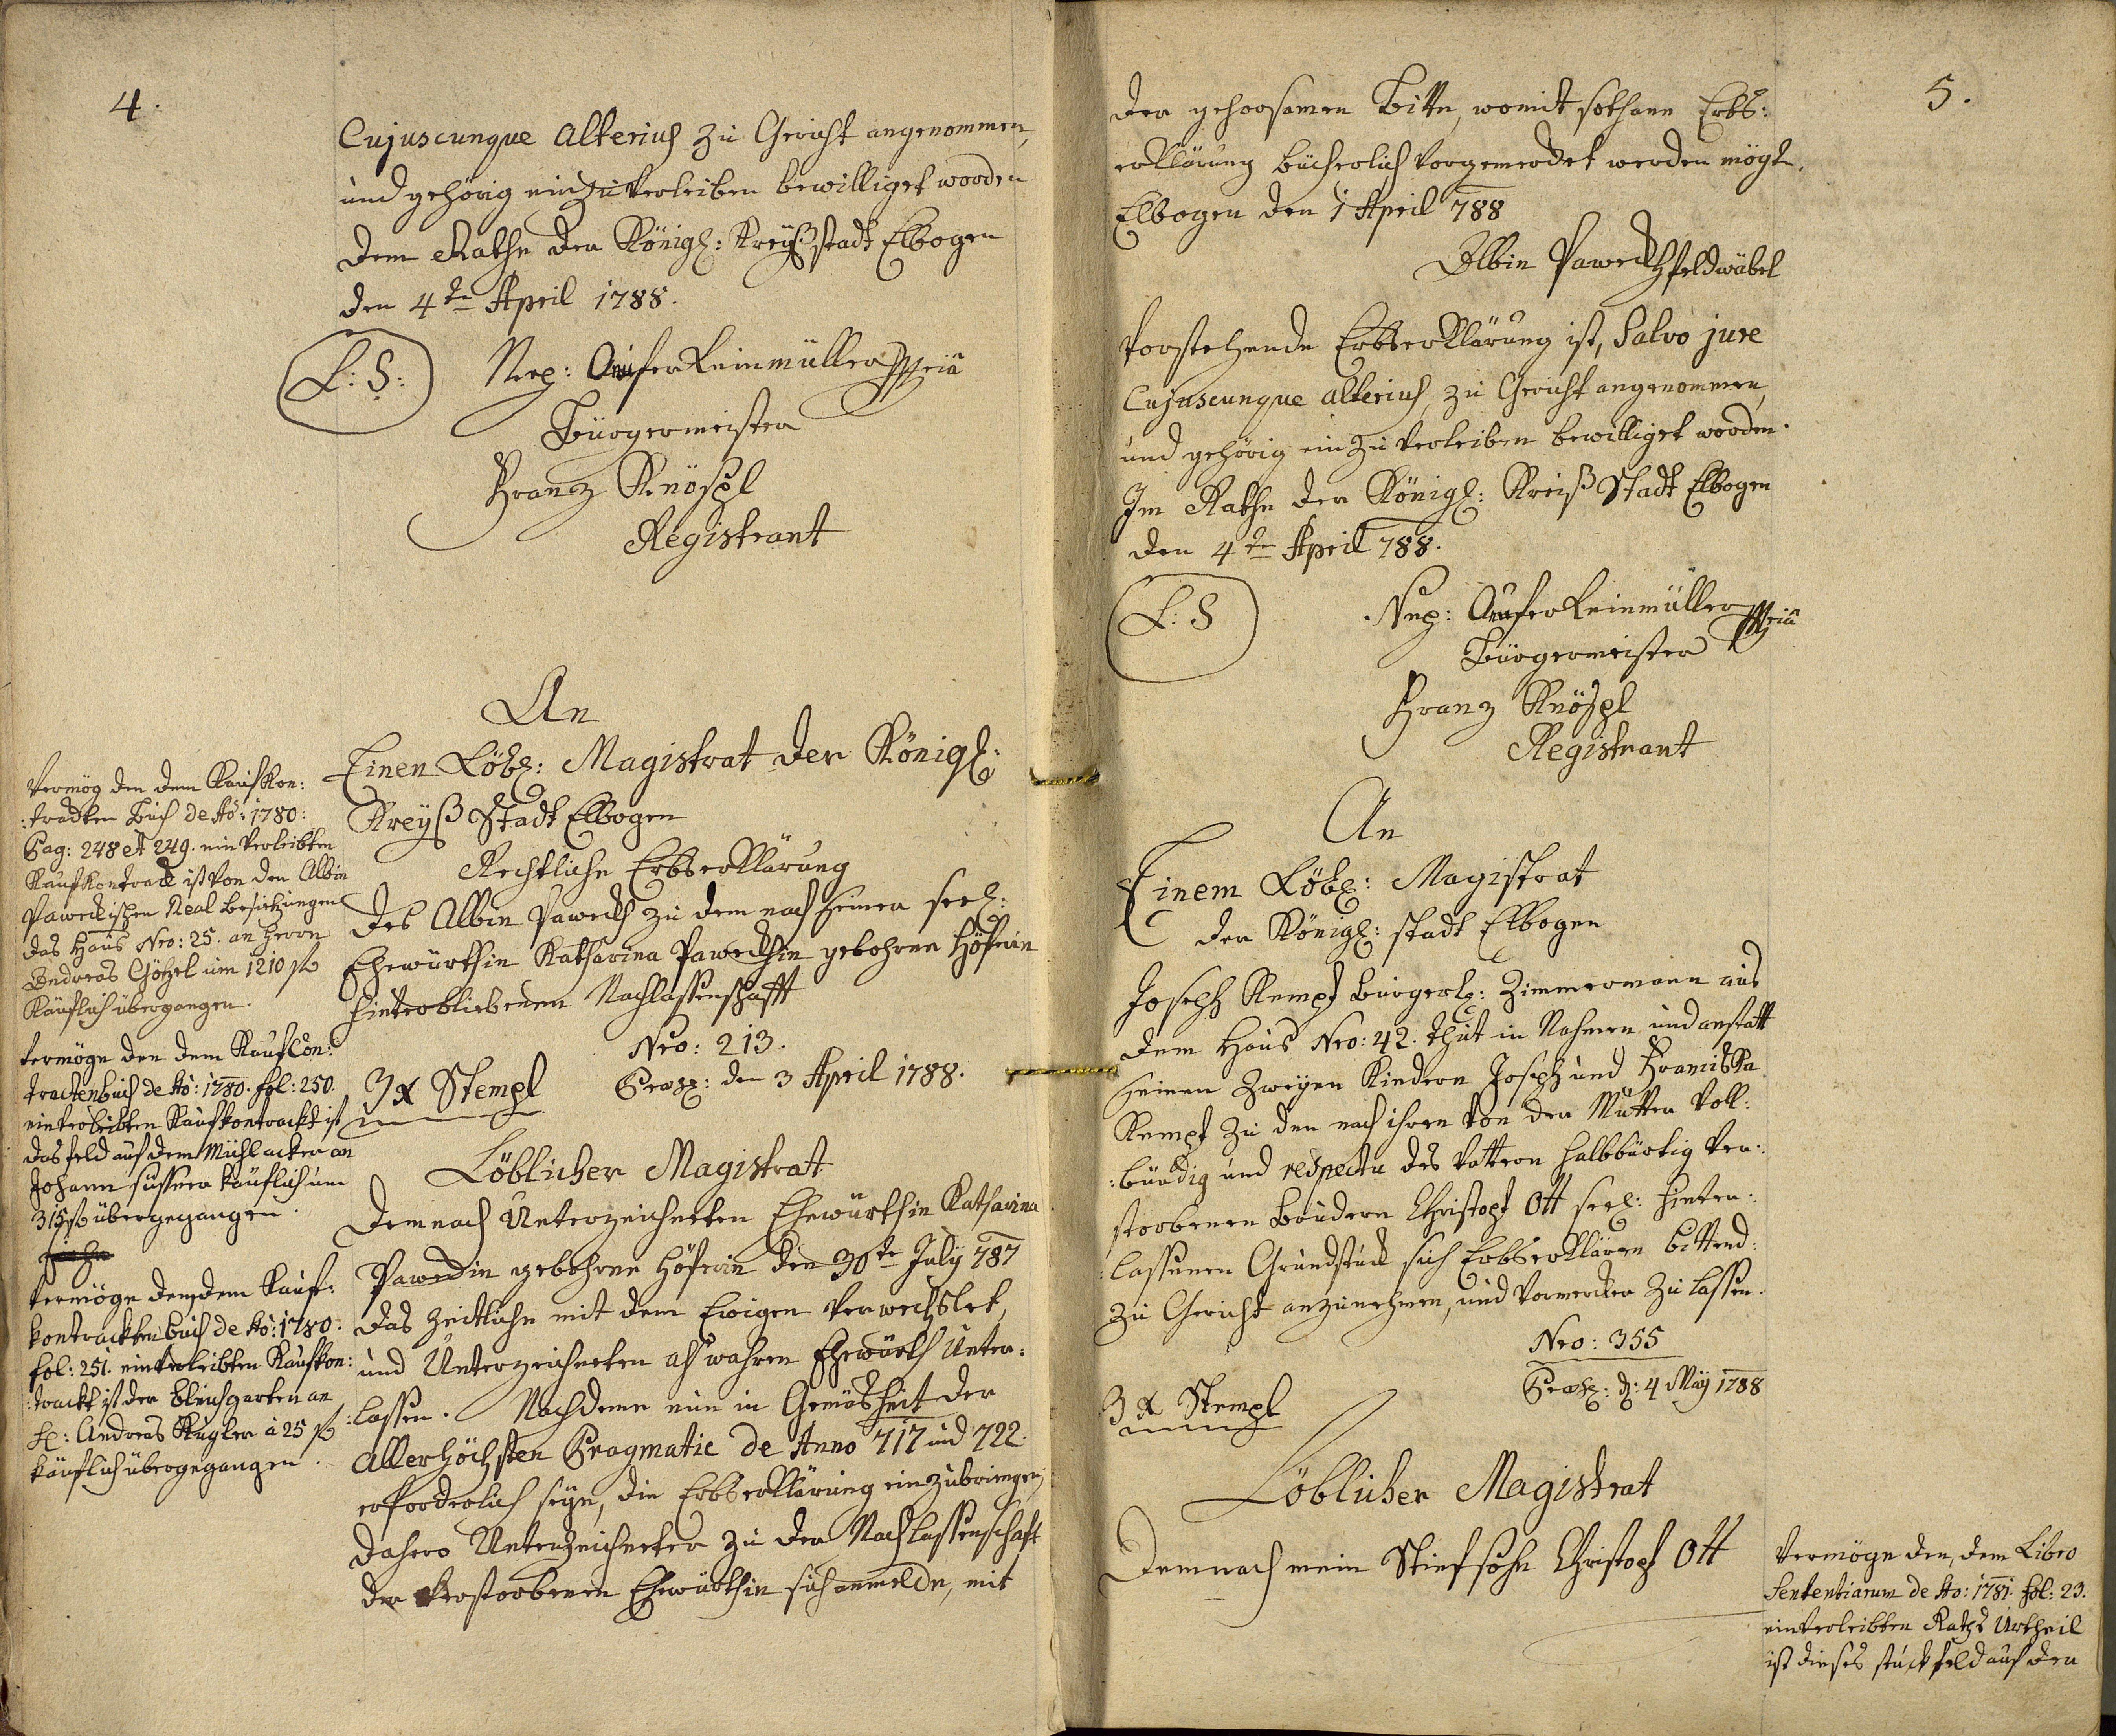 4.
Cujuscunque alterius zu Gericht angenommen,
und gehörig einzuverleiben bewilliget worden
dem Rathe der Königl: Kreyßstadt Elbogen
den 4te April 1788.
L: S:
Nep: Reinmüller
Bürgermeister
Franz Knöspl
Registrant
An
Einen Löbl: Magistrat der Königl:
Kreyß Stadt Elbogen
Rechtliche Erbserklärung
des Albin Paweckh zu dem nach seiner seel:
Ehewürthin Katharina Paweckhin gebohrne Höferin
hinterbliebenen Nachlassenschafft
Nro: 213.
3 x Stempl
Praes: den 3 April 1788.
Löblicher Magistrat
Demnach Unterzeichneten Ehewürthin Katharina
Paweckin gebohrne Höferin den 30te July 787
das zeitliche mit dem Ewigen verwechslet,
und Unterzeichneten als wahren Ehewürth Unter:
:lassen. Nachdeme nun in Gemäsheit der
allerhöchsten Pragmatic de Anno 717 und 722
erforderlich seye, die Erbserklärung einzubringen,
dahero Unterzeichneter zu der Nachlassenschaft
der verstorbenen Ehewürthin sich anmelde, mit
Vermög den dem Kaufkon:
:tracten Buch de Ao: 1780:
Pag: 248 et 249. einverleibten
Kaufkontract ist von den Albin
Paweckischen Real besitzungen
das Haus Nro: 25. an Herrn
Andreas Götzl um 1210 f
Käuflich übergangen.
Vermöge den dem KaufCon:
tractenbuch de Ao: 1780. fol: 250.
einverleibten Kaufkontrackt ist
das feld auf dem Mühlacker an
Johann sussner käuflich um
315 f übergegangen.
Vermöge dem, dem Kauf:
kontrackten buch de Ao: 1780.
fol: 251. einverleibten Kaufkon:
:trackt ist der garten an
H: Andreas Kugler à 25 f
käuflich übergegangen.
5.
der gehorsamen Bitte, womit sothane Erbs:
erklärung bücherlich vorgemercket werden mögte.
Elbogen den 1 April 788
Albin Paweckh feldwäbel
Vorstehende Erbserklärung ist, Salvo jure
Cujuscunque alterius, zu Gericht angenommen,
und gehörig einzuverleiben bewilliget worden.
Im Rathe der Königl: Kreiß Stadt Elbogen
den 4te April 788.
L: S
Nep: Reinmüller
Bürgermeister
Franz Knöspl
Registrant
An
Einem Löbl: Magistrat
der Königl: stadt Elbogen
Joseph Kempf burgerl: Zimmermann aus
dem Haus Nro: 42. thut in Nahmen und anstatt
seinen zweyen Kindern Joseph und Franciska
Kempf zu den nach ihren von der Mutter voll:
:bürdig und respectu des Vattern halbbürtig ver:
storbenen brudern Christoph Ott seel: hinter:
:lassenen Grundstück sich Erbserklären bittend:
zu Gericht anzunehmen, und vormercken zu lassen.
Nro: 355
3 x Stempl
Praes: d: 4 May 1788
Löblicher Magistrat
Demnach mein Stiefsohn Christoph Ott
Vermöge den, dem Libro
Sententiarum de Ao: 1781. fol: 23.
einverleibten Raths Urtheil
ist dieses stuck feld auf den